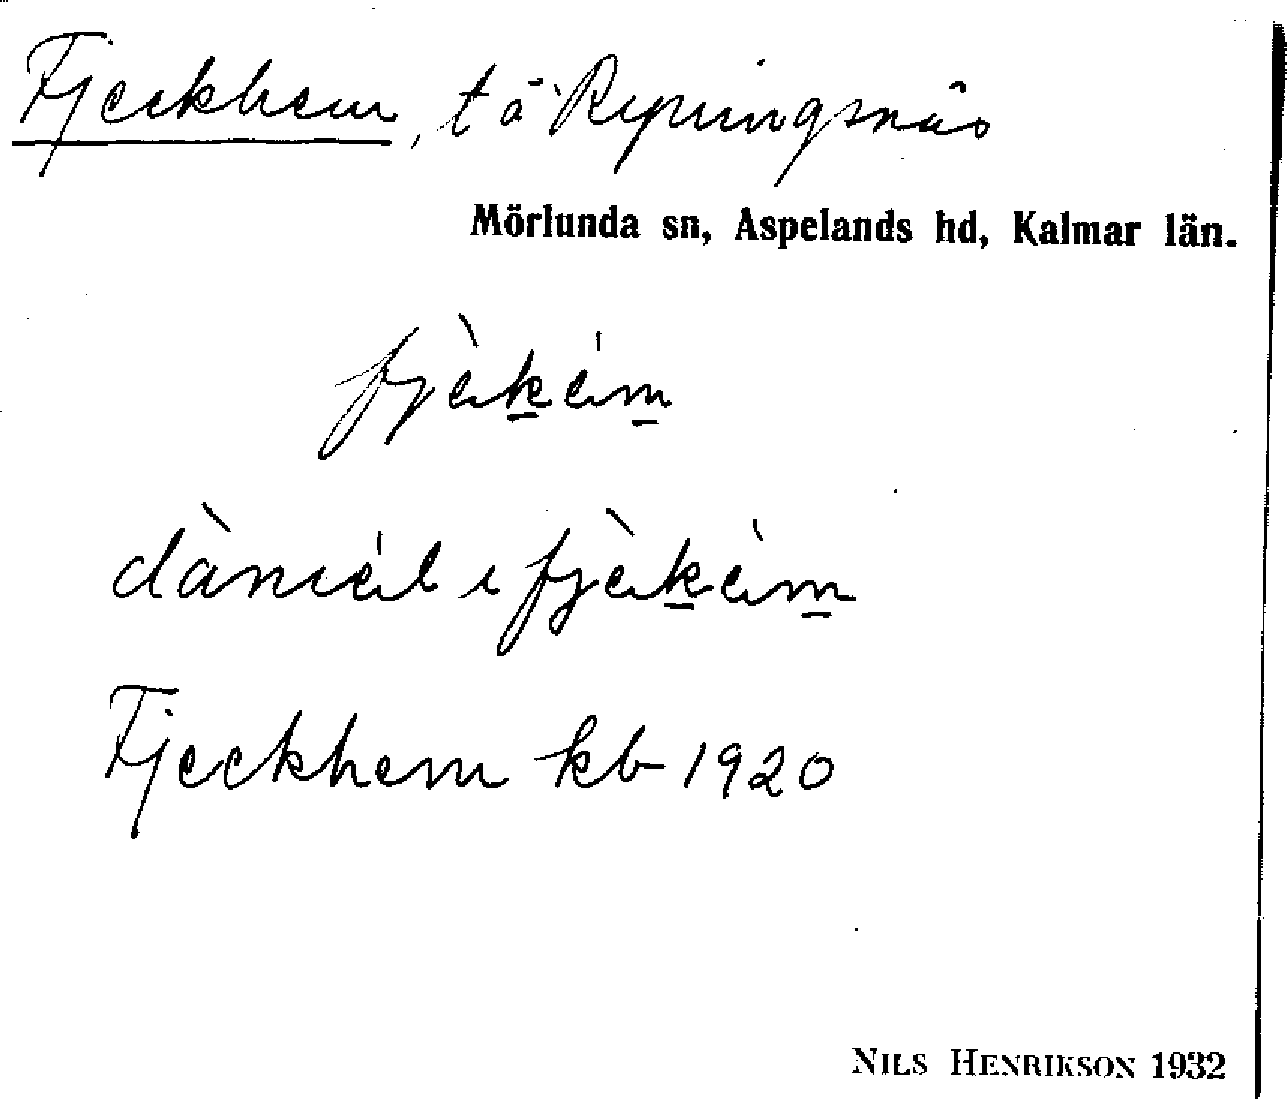 Fjeckhem, tö Ryningsnäs
Mörlunda sn, Aspelands hd, Kalmar län.
fjèkém
dàniél i fjèkèm
Fjeckhem kb 1920
NILS HENRIKSON 1932